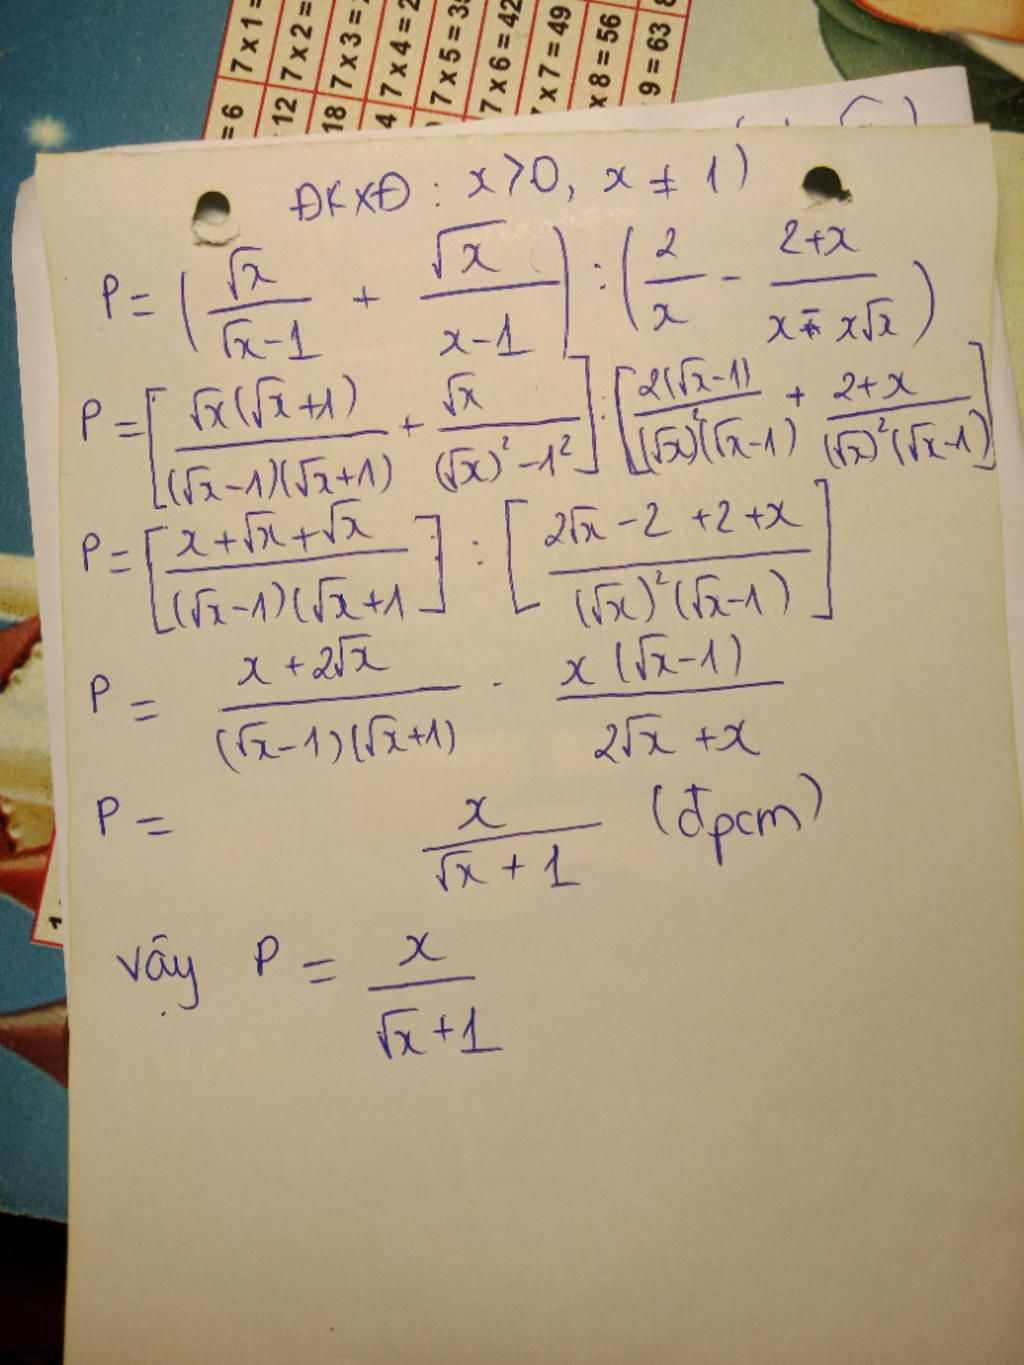 7 x 1 =
7 x 2 =
7 x 3 =
7 x 4 = 2
7 x 5 = 3
7 x 6 = 42
x 7 = 49
x 8 = 56
9 = 63
= 6
12
18
4
ĐKXĐ : x>0, x ≠ 1)
P = (√x/(√x-1) + √x/(x-1)) : (2/x - (2+x)/(x - x√x))
P = [√x(√x+1)/((√x-1)(√x+1)) + √x/((√x)²-1²)] : [2(√x-1)/((√x)²(√x-1)) + (2+x)/((√x)²(√x-1))]
P = [(x+√x+√x)/((√x-1)(√x+1)] : [(2√x-2+2+x)/((√x)²(√x-1))]
P = (x+2√x)/((√x-1)(√x+1)) · x(√x-1)/(2√x+x)
P = x/(√x+1) (đpcm)
vậy P = x/(√x+1)